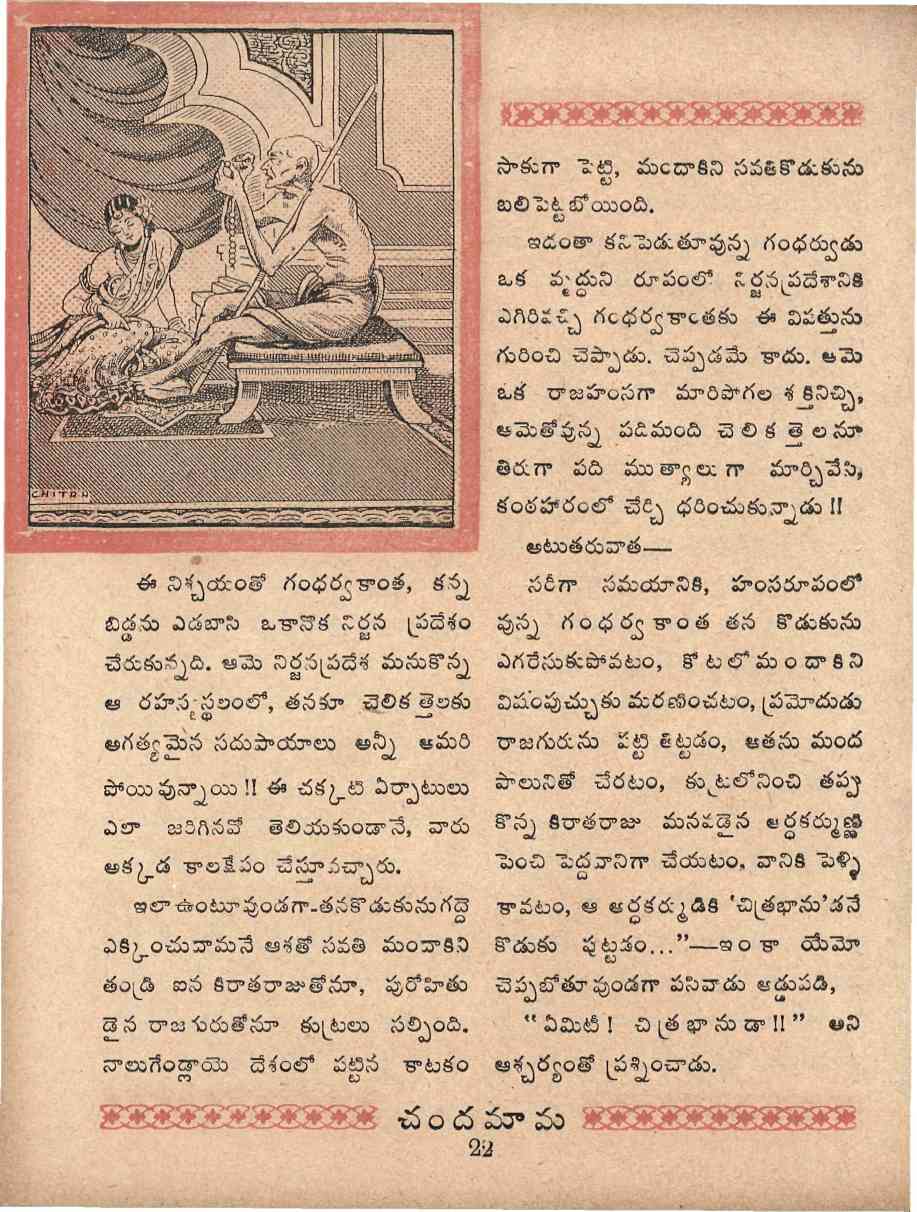 CHITRA
ఈ నిశ్చయంతో గంధర్వకాంత, కన్న
బిడ్డను ఎడబాసి ఒకానొక నిర్జన ప్రదేశం
చేరుకున్నది. ఆమె నిర్జనప్రదేశ మనుకొన్న
ఆ రహస్యస్థలంలో, తనకూ చెలికత్తెలకు
అగత్యమైన సదుపాయాలు అన్నీ అమరి
పోయివున్నాయి!! ఈ చక్కటి ఏర్పాటులు
ఎలా జరిగినవో తెలియకుండానే, వారు
అక్కడ కాలక్షేపం చేస్తూవచ్చారు.
ఇలా ఉంటూవుండగా-తనకొడుకును గద్దె
ఎక్కించువామనే ఆశతో సవతి మందాకిని
తండ్రి ఐన కిరాతరాజుతోనూ, పురోహితు
డైన రాజగురుతోనూ కుట్రలు సల్పింది.
నాలుగేండ్లాయె దేశంలో పట్టిన కాటకం
సాకుగా పెట్టి, మందాకిని సవతికొడుకును
బలిపెట్టబోయింది.
ఇదంతా కనిపెడుతూవున్న గంధర్వుడు
ఒక వృద్ధుని రూపంలో నిర్జనప్రదేశానికి
ఎగిరివచ్చి గంధర్వకాంతకు ఈ విపత్తును
గురించి చెప్పాడు. చెప్పడమే కాదు. ఆమె
ఒక రాజహంసగా మారిపోగల శక్తినిచ్చి,
ఆమెతోవున్న పదిమంది చెలికత్తెలనూ
తిరుగా పది ముత్యాలుగా మార్చివేసి,
కంఠహారంలో చేర్చి ధరించుకున్నాడు!!
అటుతరువాత—
సరీగా సమయానికి, హంసరూపంలో
వున్న గంధర్వకాంత తన కొడుకును
ఎగరేసుకుపోవటం, కోటలో మందాకిని
విషంపుచ్చుకు మరణించటం, ప్రమోదుడు
రాజగురును పట్టి తిట్టడం, అతను మంద
పాలునితో చేరటం, కుట్రలోనించి తప్పు
కొన్న కిరాతరాజు మనవడైన అర్ధకర్ముణ్ణి
పెంచి పెద్దవానిగా చేయటం, వానికి పెళ్ళి
కావటం, ఆ అర్ధకర్ముడికి 'చిత్రభాను'డనే
కొడుకు పుట్టడం..."—ఇంకా యేమో
చెప్పబోతూవుండగా పసివాడు అడ్డుపడి,
"ఏమిటీ! చిత్రభానుడా!!" అని
ఆశ్చర్యంతో ప్రశ్నించాడు.
చందమామ
22